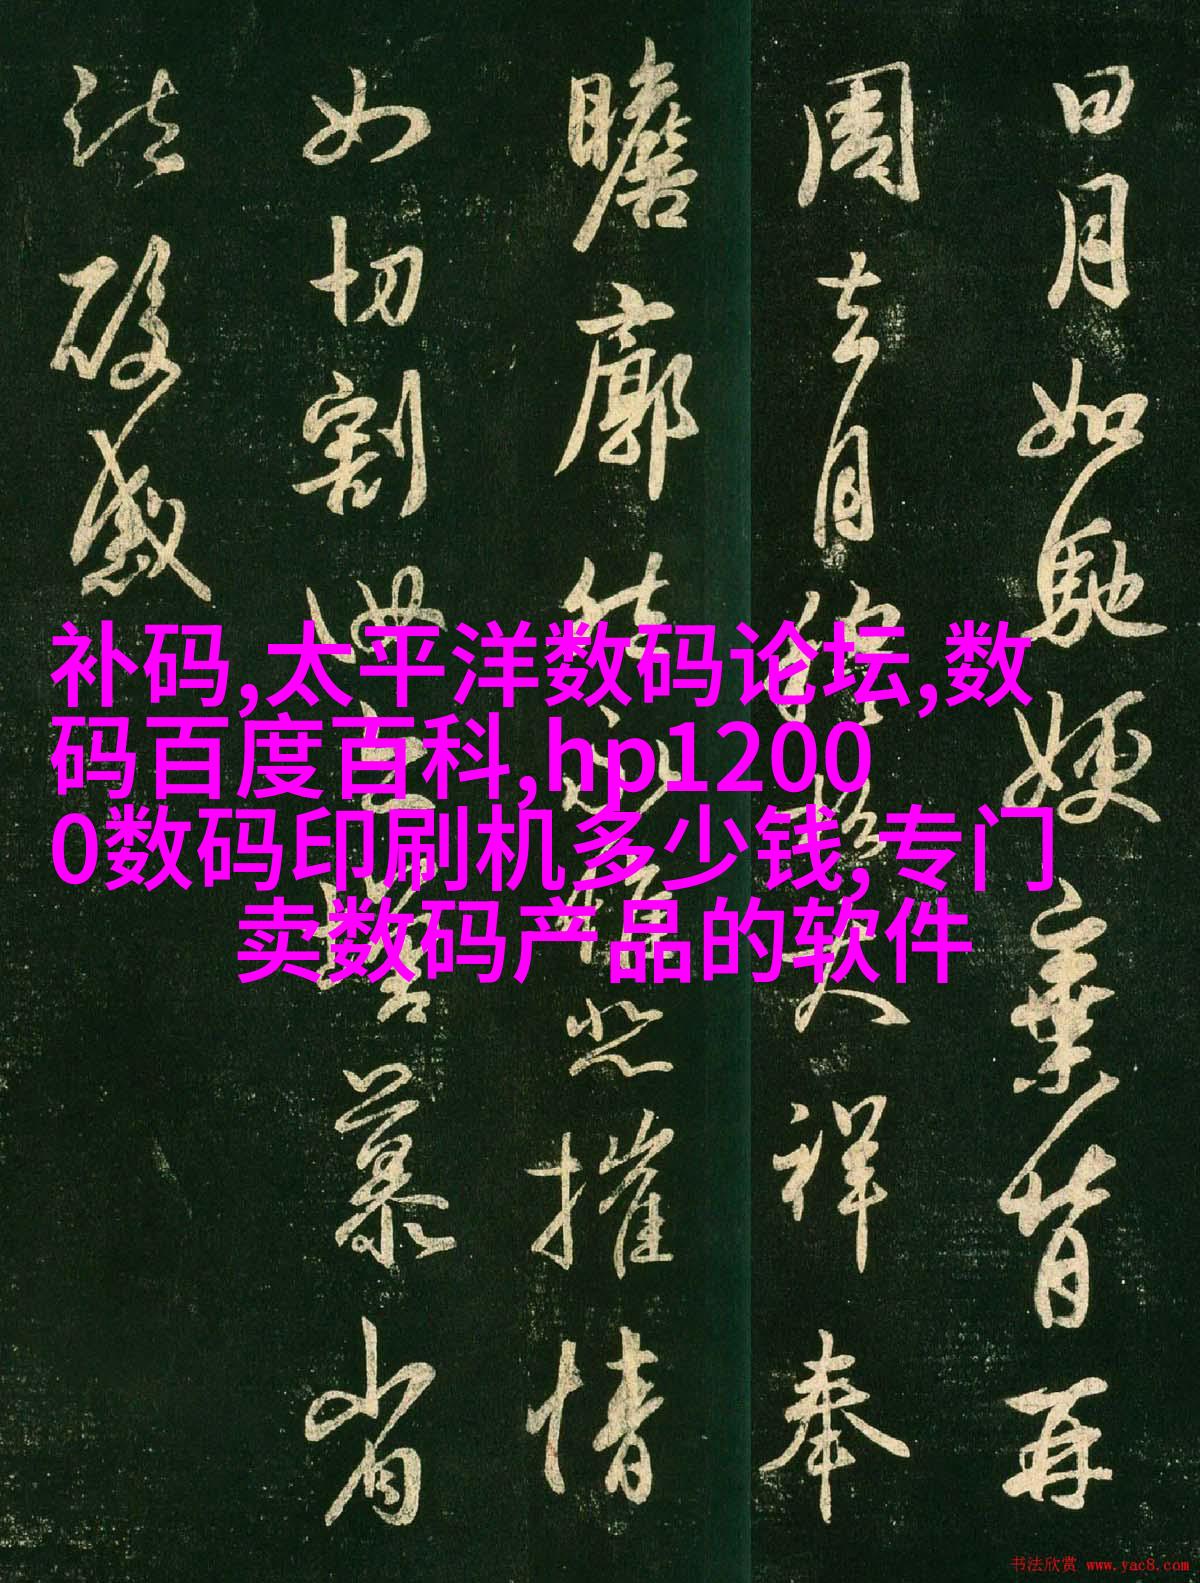 日月如馳嫂棄背再
周去月穆松大祥奉
瞻廓然永惟悲摧情
如切割慕省
酸感
补码,太平洋数码论坛,数
码百度百科,hp1200
0数码印刷机多少钱,专门
卖数码产品的软件
书法欣赏 www.yac8.com